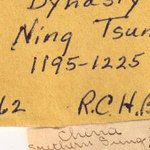 Dynasty
Ning Tsun
1195-1225
62 R.C.H.B
China
Southern Sung